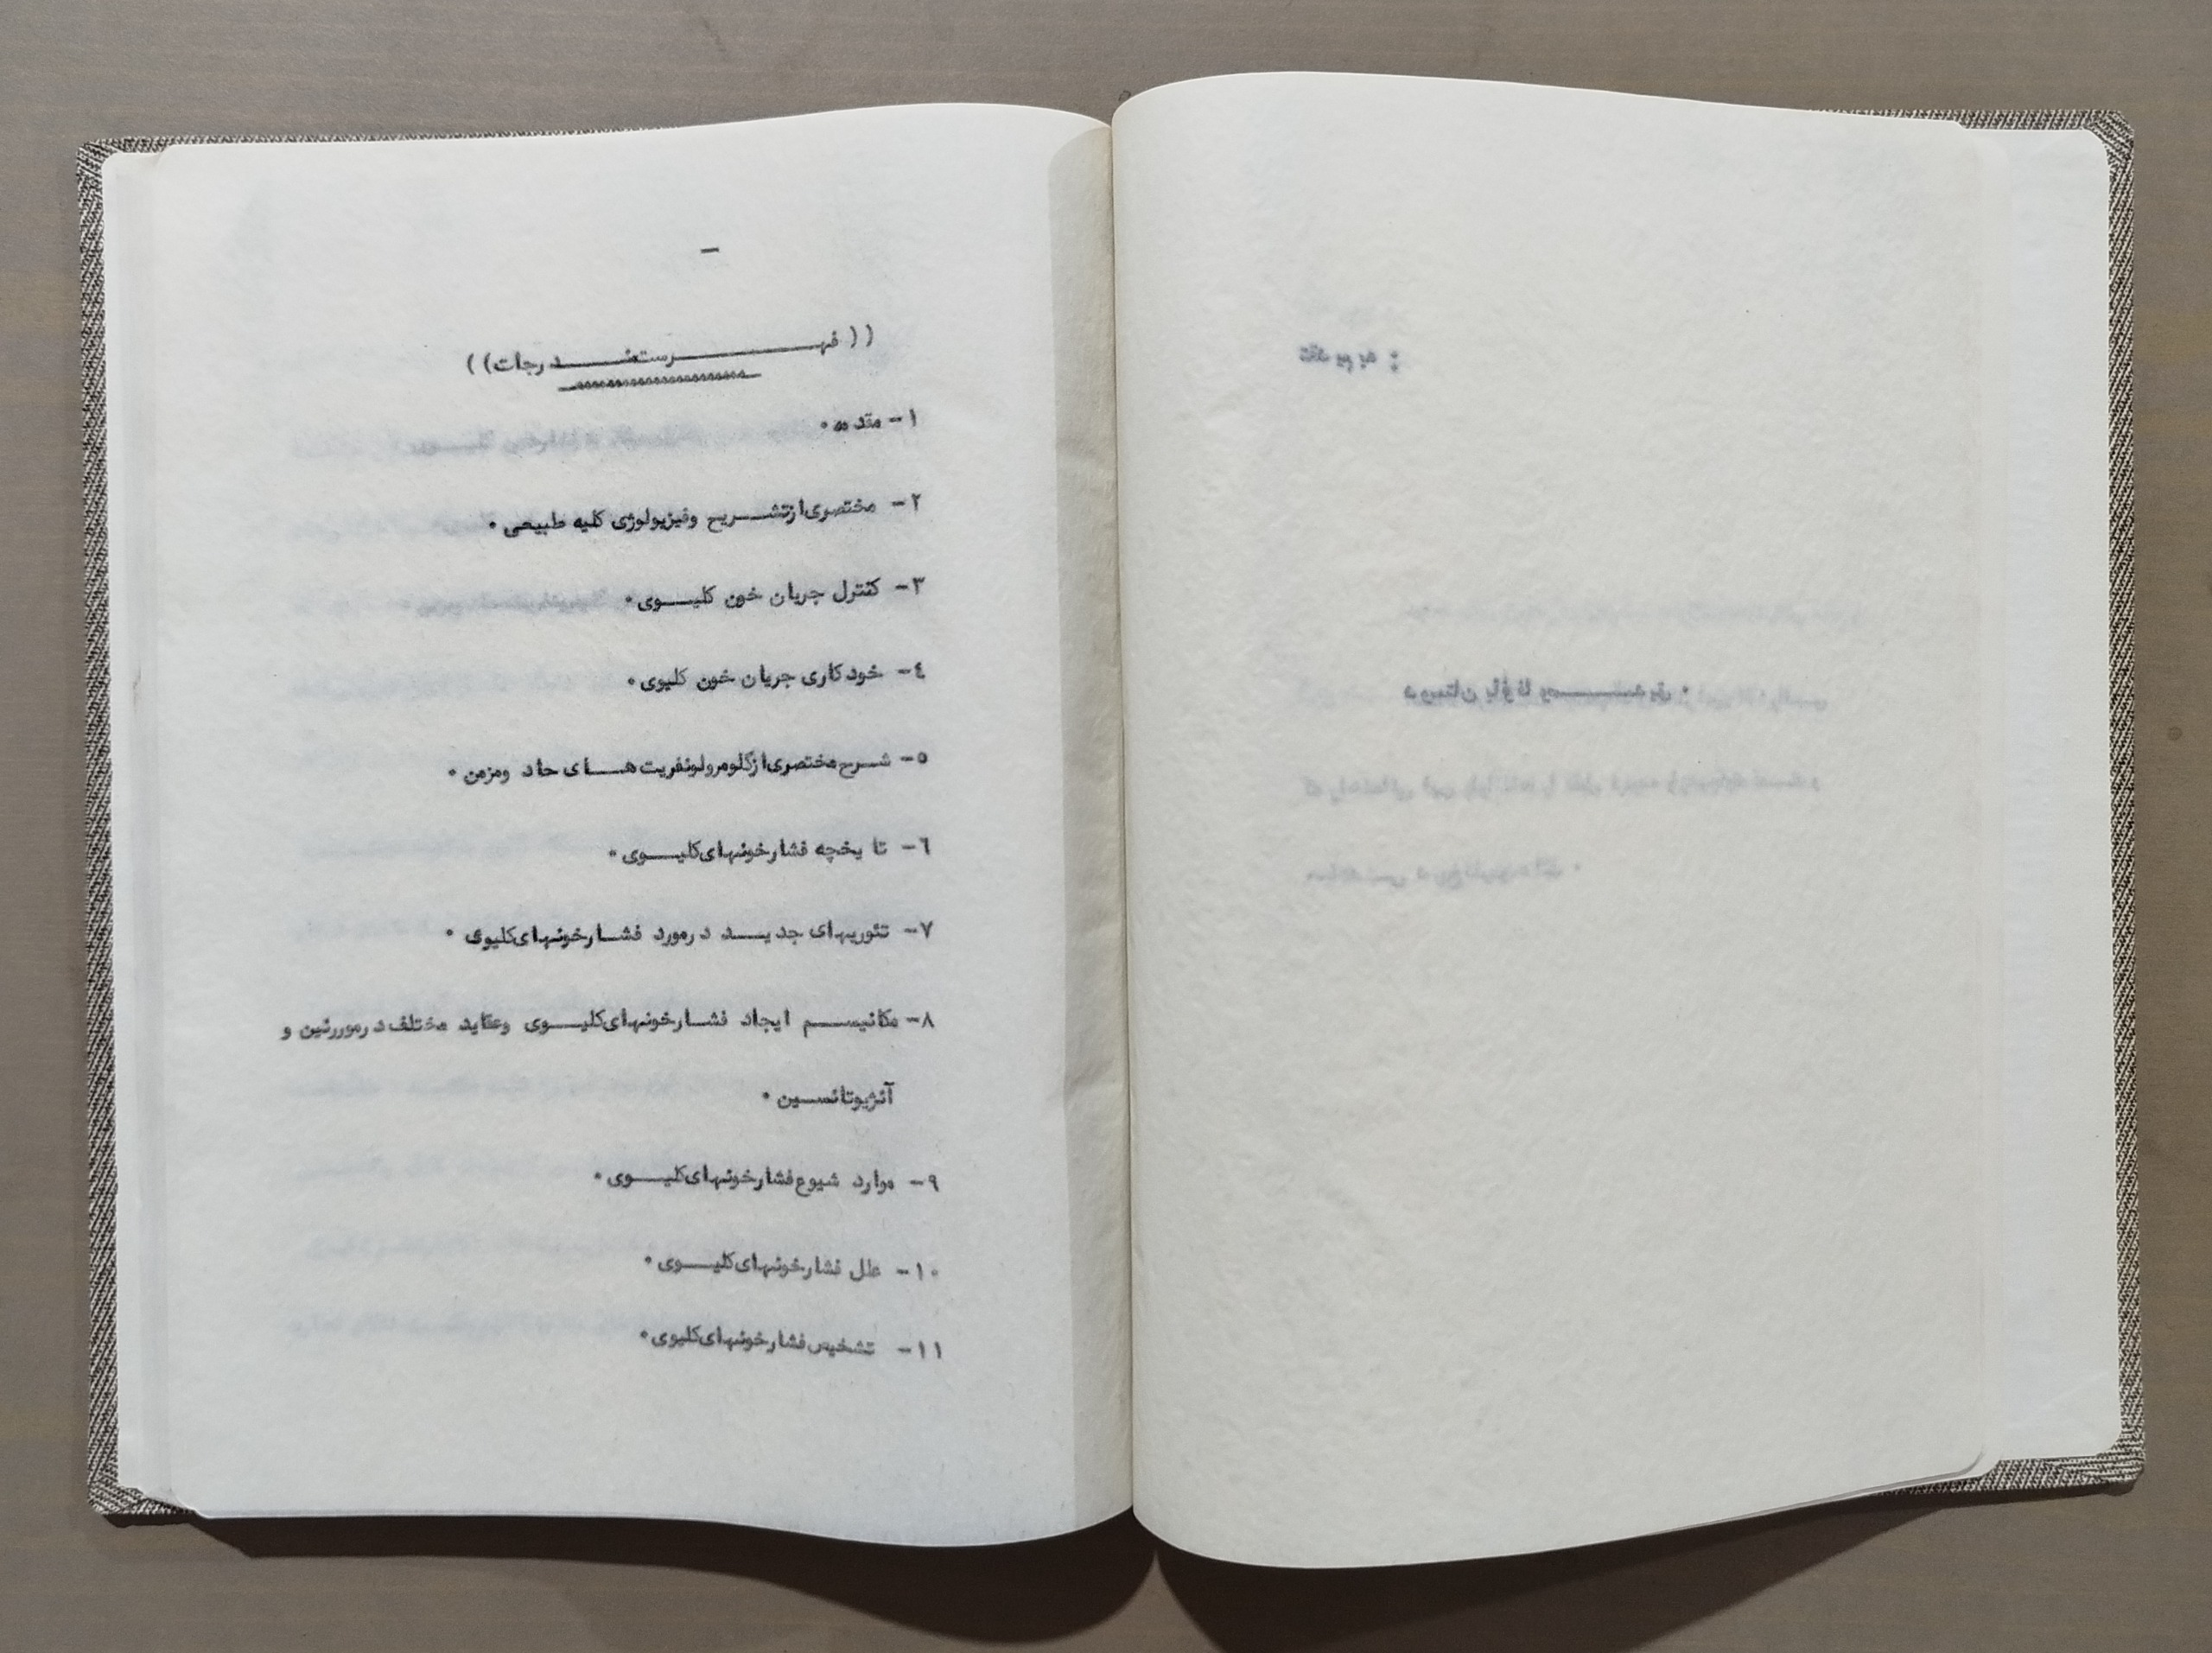 (( فهرستمندرجات))
۱- مقدمه ۰
۲- مختصری‌ازتشریح وفیزیولوژی کلیه طبیعی ۰
۳- کنترل جریان خون کلیوی ۰
٤- خودکاری جریان خون کلیوی ۰
٥- شرح مختصری‌ازگلومرولونفریت‌های حاد ومزمن ۰
٦- تا یخچه فشارخونهای‌کلیوی ۰
۷- تئوریهای جدید درمورد فشارخونهای‌کلیوی ۰
۸- مکانیسم ایجاد فشارخونهای‌کلیوی وعقاید مختلف‌درموررنین و
آنژیوتانسین ۰
۹- موارد شیوع‌فشارخونهای‌کلیوی ۰
۱۰- علل فشارخونهای‌کلیوی ۰
۱۱- تشخیص‌فشارخونهای‌کلیوی ۰